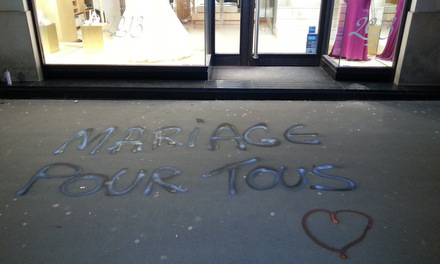 MARIAGE
POUR TOUS